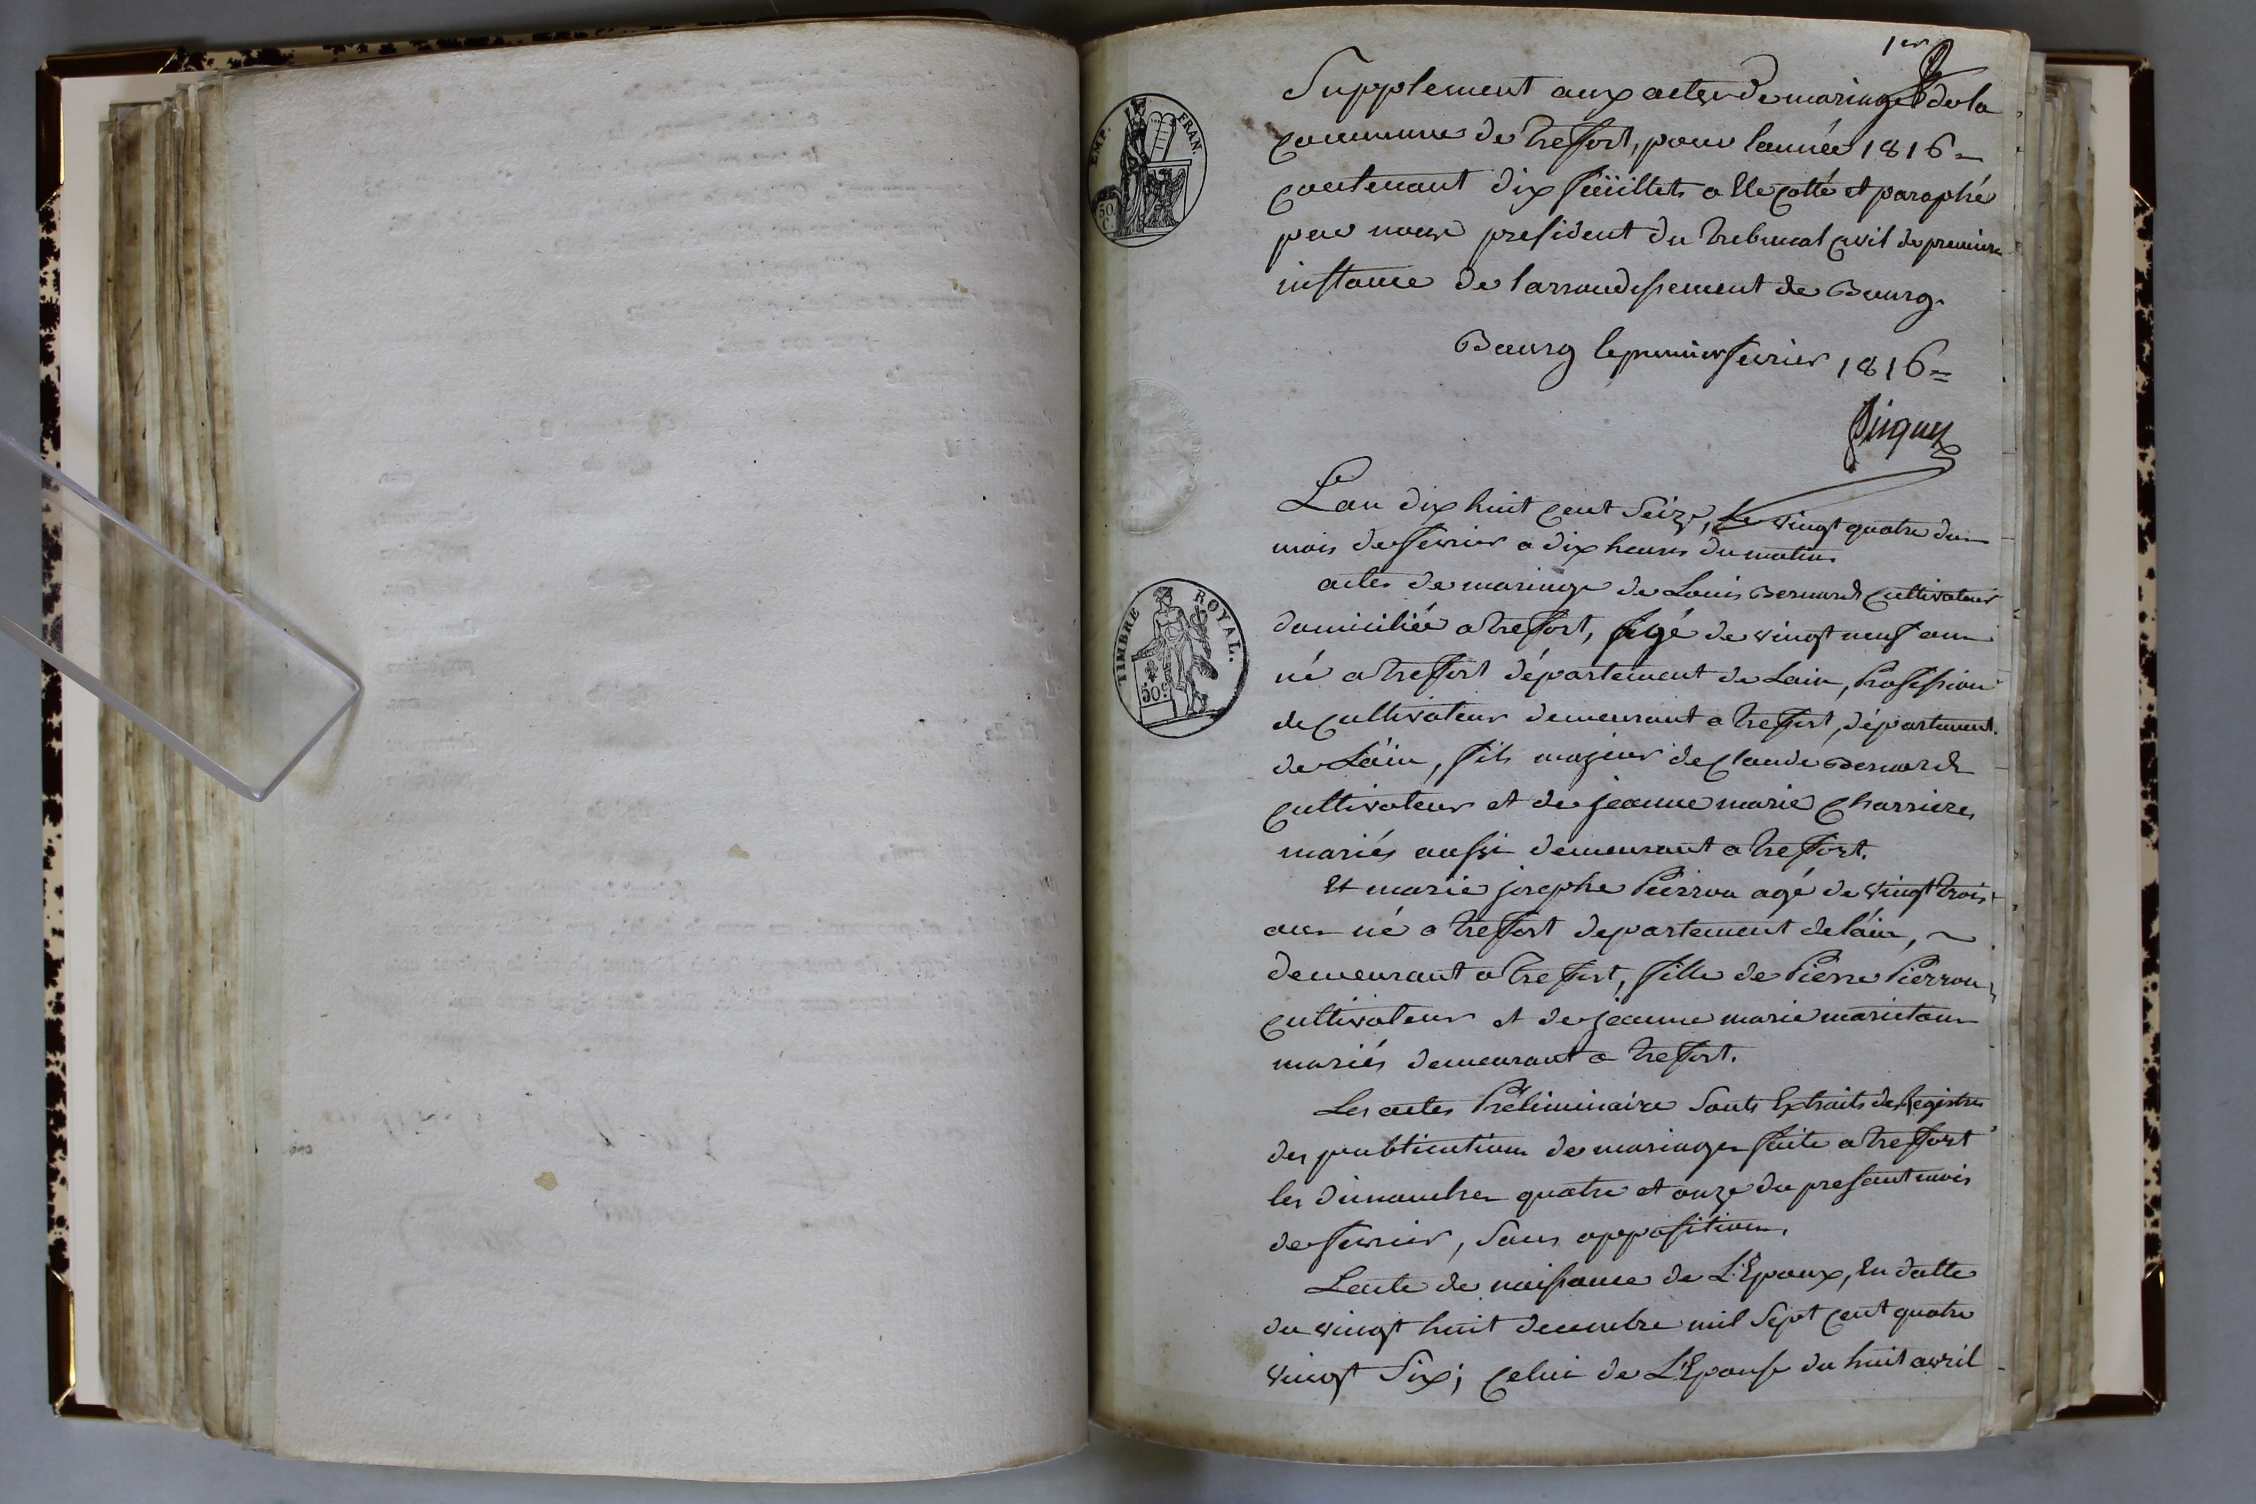 1er
Supplement aux actes de mariage de la
commune de treffort, pour lannée 1816 =
contenant dix feüillets a Ete cotté et paraphé
par nous president du tribunal civil de premiere
instance de larrondissement de Bourg.
Bourg le premier fevrier 1816 =
EMP. FRAN.
50 C.
Lan dix huit cent Seize, le vingt quatre du
mois de fevrier a dix heures du matin
actes de mariage de Louis Bernard Cultivateur
domiciliée a treffort, agé de vingt neuf ans
né a treffort département de Lain, Profession
de Cultivateur demeurant a treffort, département
de Láin, fils majeur de Claude Bernard
cultivateur et de jeanne marie Charriere
mariés aussi demeurant a treffort.
TIMBRE ROYAL.
50 c
Et marie josephe Pierron agé de vingt trois
ans né a treffort departement de láin, ~
demeurant a treffort, fille de Pierre Pierron
cultivateur et de jeanne marie marietan
mariés demeurant a treffort.
Les actes Préliminaire Sont Extraits des Registres
des publication de mariages faite a treffort
les dimanches quatre et onze du presant mois
de fevrier, Sans opposition.
Lacte de naissance de L'Epoux, En datte
du vingt huit decembre mil Sept cent quatre
vingt Six; celui de L'Epouse du huit avril